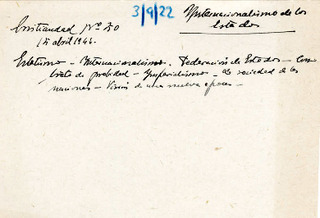 3/9/22
Internacionalismo de los
Estados
Cristiandad Nº 50
15 abril 1946.
Estatismo - Internacionalismo. Federación de Estados - Con-
trato de
- Imperialismo - La sociedad de las
naciones - Visión de una nueva época -